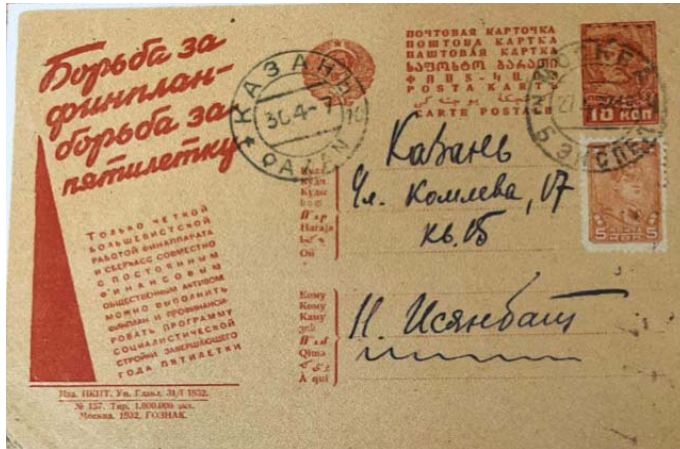 Борьба за
финплан-
борьба за
пятилетку
ТОЛЬКО ЧЕТКОЙ
БОЛЬШЕВИСТСКОЙ
РАБОТОЙ ФИНАППАРАТА
И СБЕРКАСС СОВМЕСТНО
С ПОСТОЯННЫМ
ФИНАНСОВЫМ
ОБЩЕСТВЕННЫМ АКТИВОМ
МОЖНО ВЫПОЛНИТЬ
ФИНПЛАН И ПРОФИНАНСИ-
РОВАТЬ ПРОГРАММУ
СОЦИАЛИСТИЧЕСКОЙ
СТРОЙКИ ЗАВЕРШАЮЩЕГО
ГОДА ПЯТИЛЕТКИ
Изд. НКПТ. Уп. Главл. 31/I 1932.
№ 157. Тир. 1.000.000 экз.
Москва. 1932. ГОЗНАК.
КАЗАНЬ
30.4-7
QAZAN
ПОЧТОВАЯ КАРТОЧКА
ПОШТОВА КАРТКА
ПАШТОВАЯ КАРТКА
POSTA KARTЬ
CARTE POSTALE
МОСКВА
10 КОП
5 ПОЧТА КОП. 5
Куда
Куди
Куды
Haraja
Où
Казань
Ул. Комлева, 17
кв. 15
Кому
Кому
Каму
Qıma
À qui
Н. Исянбат